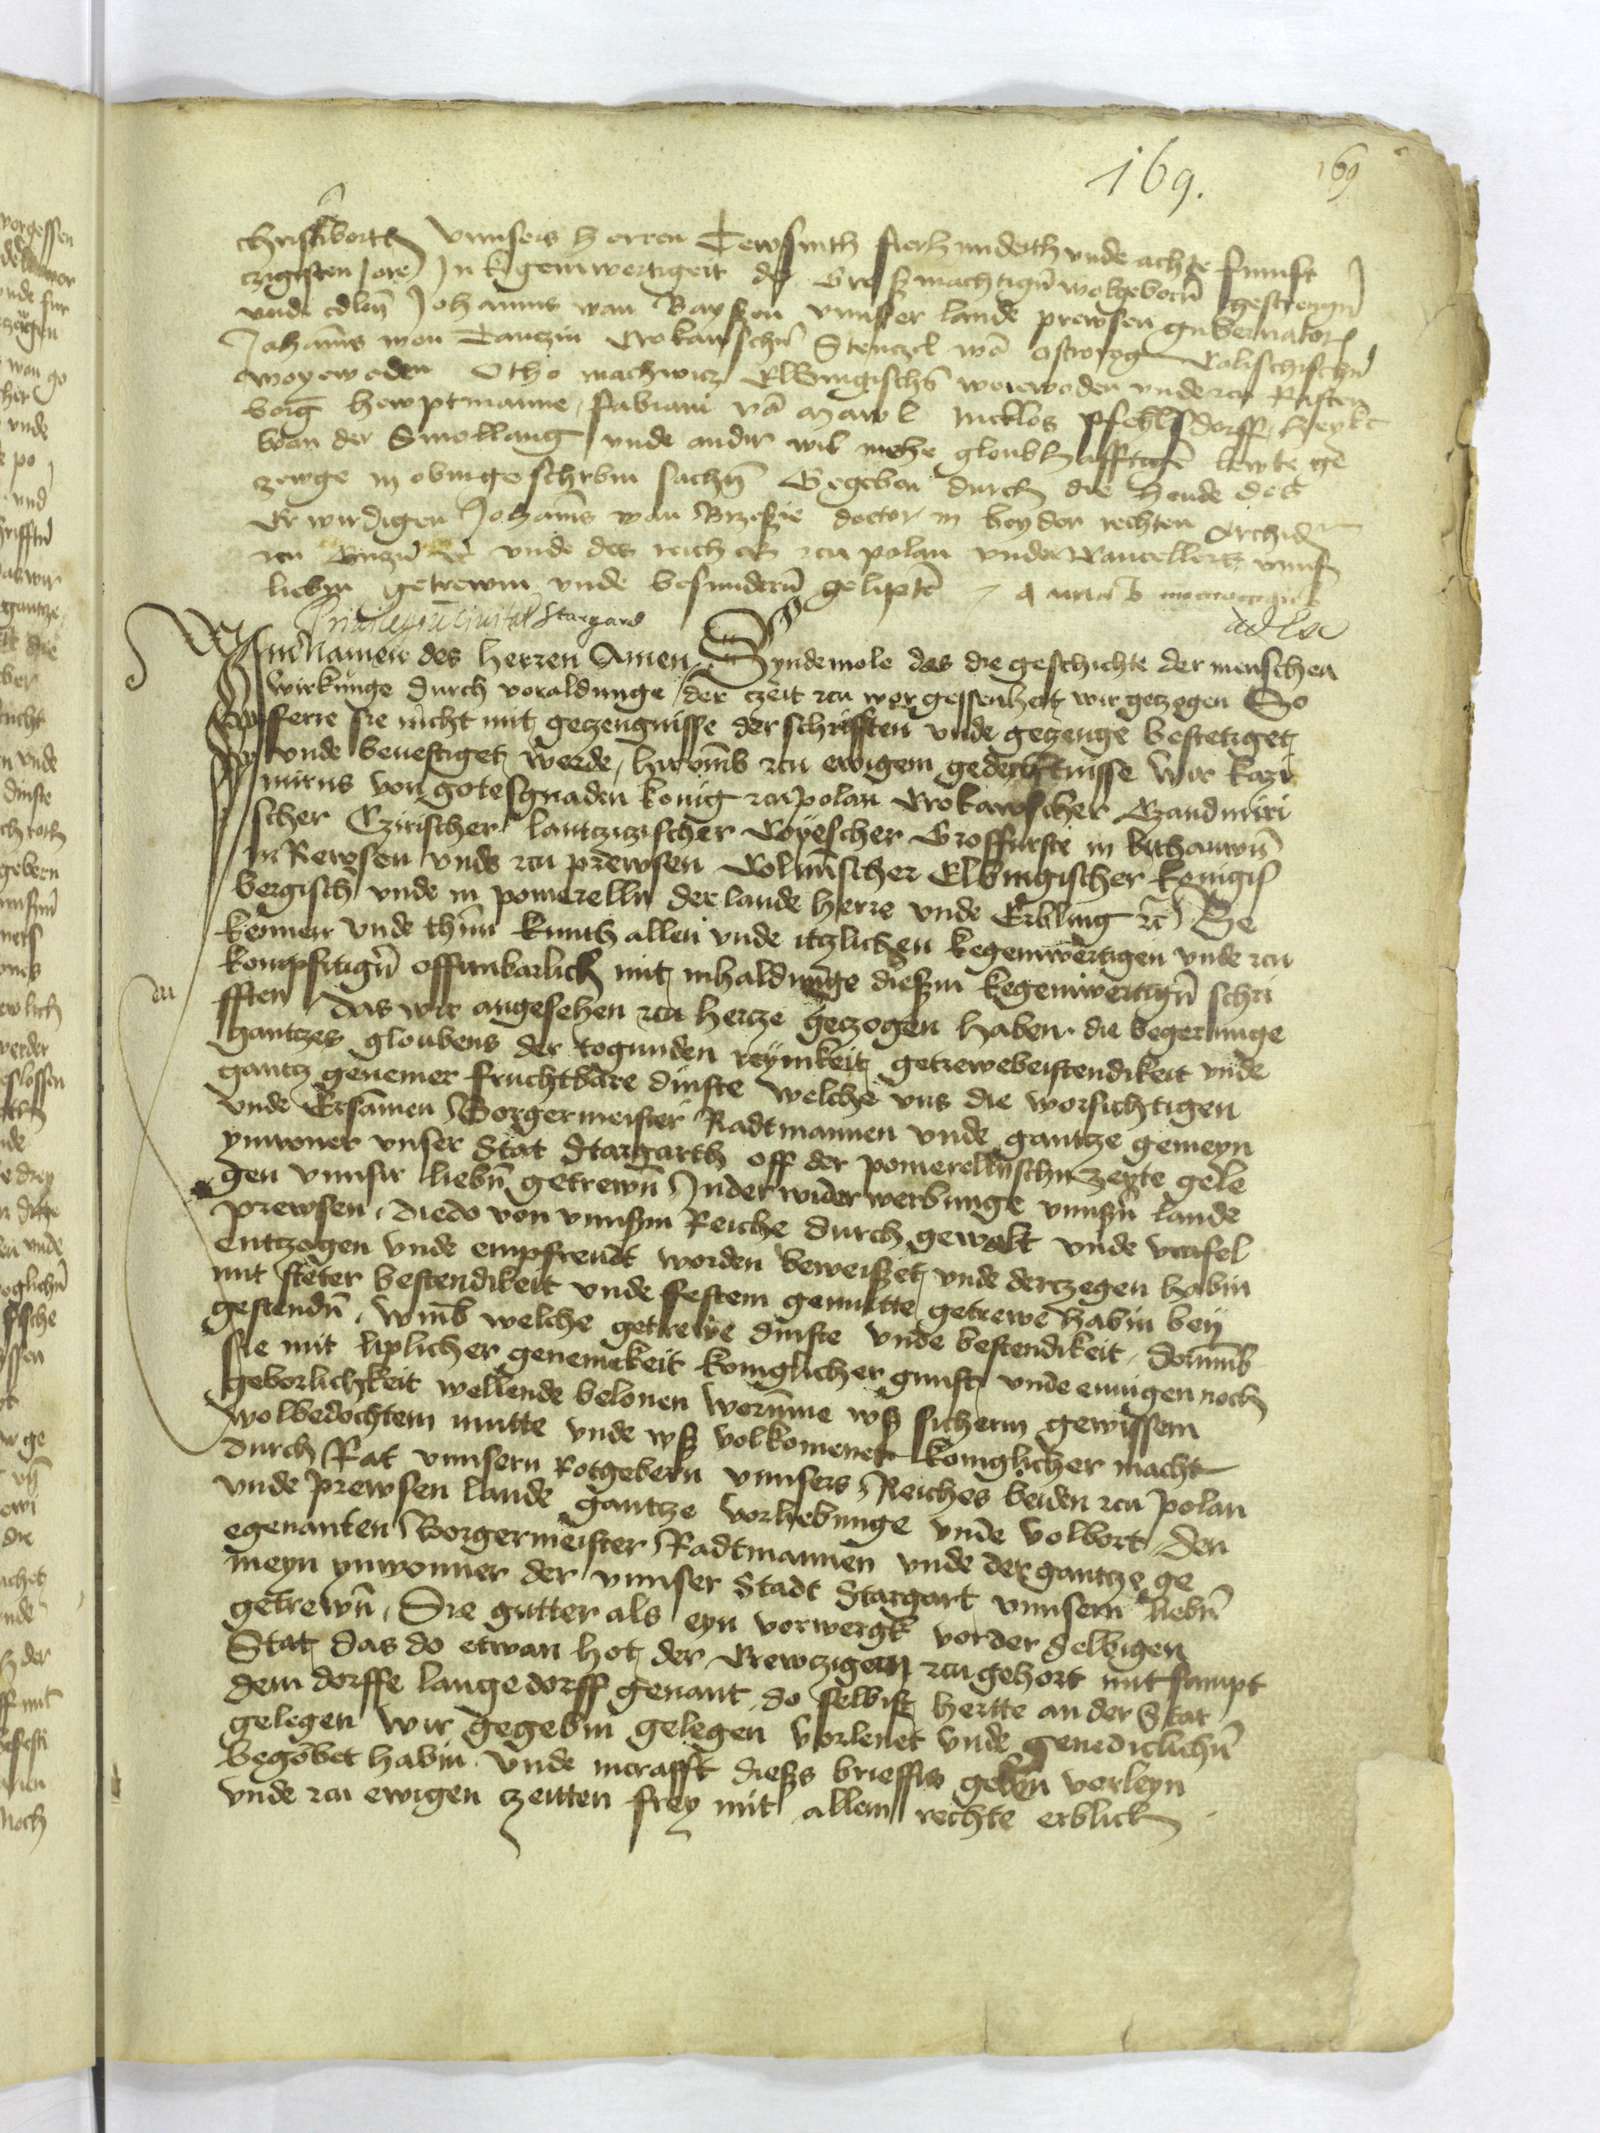 169.
169
christi bort unnsers herren Tewsunth fierhunderth unde achte funfft
czigsten Jore In kegenwertigeit der Grosmachtigen wolgeborn gestrengen
unde edlen Johannis van Baysen unser lande prewsen gubernator
Johannis von Tanczin Crokawschen Stenczel van Ostrorog Calischischen
woyewoden Otho machwicz Elbingischen woiewoden unde
borg hewptmanne, fabiani van Mawl nicklos pfeylsdorff,
van der Smollang unde andir wil mehe gloubhafftigen lewte
zewge in obinge schrbin sachen Gegeben durch die hende des
Erwirdigen Johannis van Brzesie doctor in beyder rechten Archid
unde des reiches czu polan unde Cancellers unnser
liebyn getrewen unde besundern gelipten
Privilegium Civitatis Stargard
Im Namen des herren Amen Syndemole das die geschichte der menschen
wirkunge durch voraldunge der czeit czu vorgessenheit wir geczogen So
ferre sie nicht mit geczeugnisse der schrifften unde geczeuge bestetiget
unde bevestiget werde, hirumb czu ewigem gedechtnisse Wir Kazi
mirus von gotesgnaden konig czu polan Crokawscher Czandmiri
scher Czirischer lantczitzischer Coyescher Grosfurste in litthauwen
in Rewsen unde czu prewsen Colmischer Elbingischer konigis
bergisch unde in pomerelln der lande herre unde Erbling etc Be
kennen unde thun kunth allen unde itzlichen kegenwertigen unde czu
kompftigen offinbarlich mit inhaldunge dieszin kegenwertigen schri
fften das wir angesehen czu hercze geczogen haben die begerunge
gantzes gloubens der togunden reynikeit getrewebestendikeit unde
gantz genemer fruchtbare dinste welche uns die worsichtigen
unde Ersamen Borgermeister Radtmannen unde gantze gemeyn
ynwoner unser Stat Stargarth off der pomerellischen zeyte gele
gen unnsir liebn getrewen In der widerwerbunge unnsren lande
prewsen, diedo von unnsym Reiche durch gewalt unde
entzogen unde empfremdt worden beweiset unde derczegen habin
mit steter bestendikeit unde festem gemutte getrewe habin bey
gestenden, umb welche getrewe dinste unde bestendikeit, dorumb
sie mit liplicher genemekeit koniglicher gunst unde noch
geborlichkeit wellende belonen worumme usz sicherm gewissem
wolbedochtem mutte unde usz volkomener koniglicher macht
durch Rat unnsern Rotgebern unnsers Reiches beiden czu polan
unde prewsen lande gantze vorliebunge unde volbort, den
egenanten Borgermeister Radtmannen unde der gantze ge
meyn ynwonner der unnser Stadt Stargart unnsern liebn
getrewen, Sie gutter als eyn vorwergk vor der selbigen
Stat, das do etwan hot der Crewczigern czu gehort mit sampt
dem dorffe langedorff genant, do selbist hertte an der Stat
gelegen wir gegebin gelegen vorlenet unde genediclichen
begobet habin unde incrafft dieszis brieffis gebyn vorleyn
unde czu ewigen czeitten frey mit allem rechte erblich